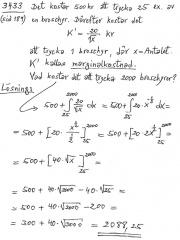 3433 Det kostar 500 kr att trycka 25 ex. av
(sid 189) en broschyr. Därefter kostar det
K' = 20/√x kr
att trycka 1 broschyr, där x = Antalet.
K' kallas marginalkostnad.
Vad kostar det att trycka 2000 broschyrer?
Lösning:
500 + ∫₂₅²⁰⁰⁰ 20/√x dx = 500 + ∫₂₅²⁰⁰⁰ 20·x^(-1/2) dx =
= 500 + [20·x^(1/2)/(1/2)]₂₅²⁰⁰⁰ = 500 + [20·2x^(1/2)]₂₅²⁰⁰⁰ =
= 500 + [40·√x]₂₅²⁰⁰⁰ =
= 500 + 40·√2000 - 40·√25 =
= 500 + 40·√2000 - 200 =
= 300 + 40·√2000 = 2088,85